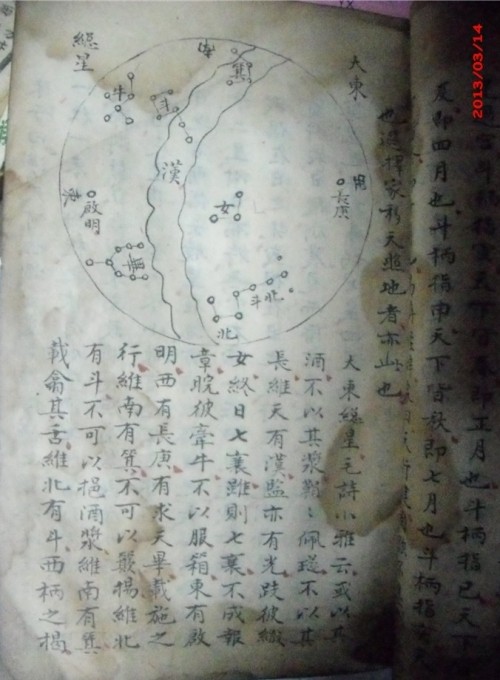 正月也斗柄指巳天下
夏即四月也斗柄指南天下皆秋即七月也斗柄指
也選擇家移天照地者亦此也
大東
總星
南
箕
牛
斗
漢
長庚
啟明
女
畢
北斗
北
大東總星毛詩小雅云或以其
酒不以其漿鞙〻佩璲不以其
長維天有漢監亦有光跂彼織
女終日七襄雖則七襄不成報
章睆彼牽牛不以服箱東有啟
明西有長庚有求天畢載施之
行維南有箕不可以簸揚維北
有斗不可以挹酒漿維南有箕
載翕其舌維北有斗西柄之揭
2013/03/14